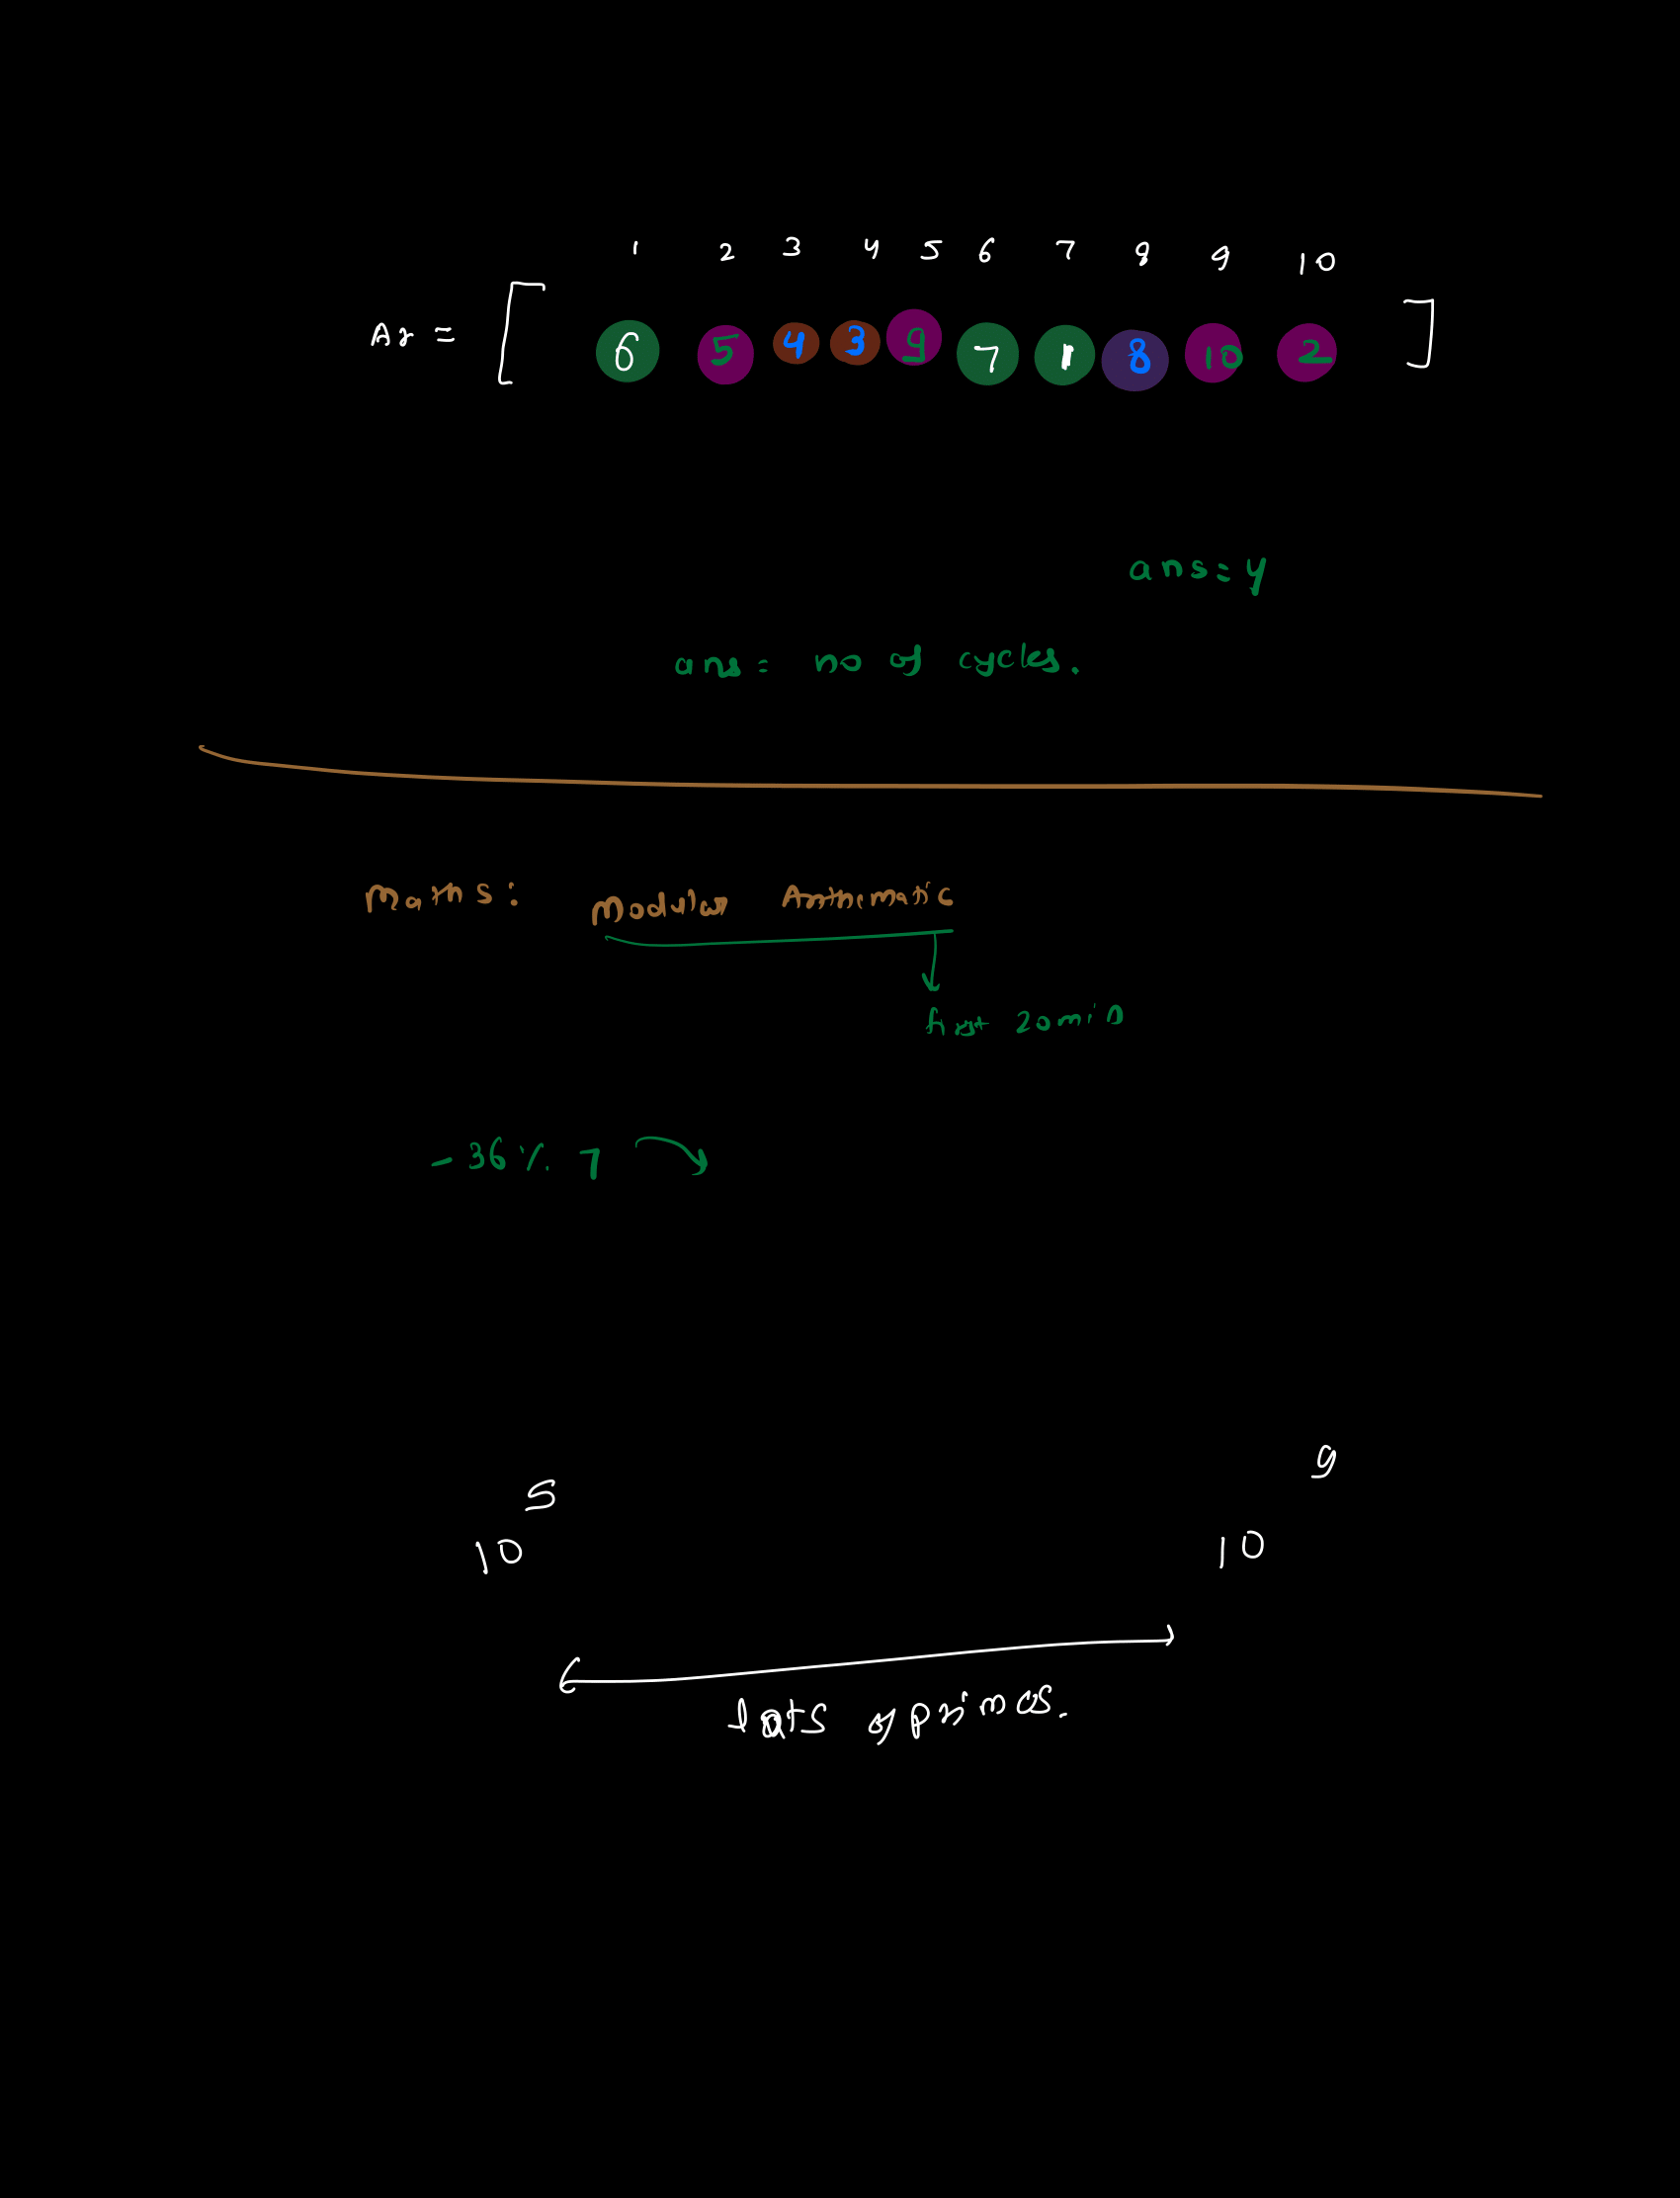 1 2 3 4 5 6 7 8 9 10
Ar = [ 6 5 4 3 9 7 1 8 10 2 ]
ans = 4
ans = no of cycles.
Maths : Modular Arithmatic
first 20 min
- 36 % 7
10^5 10^9
lots of primes.